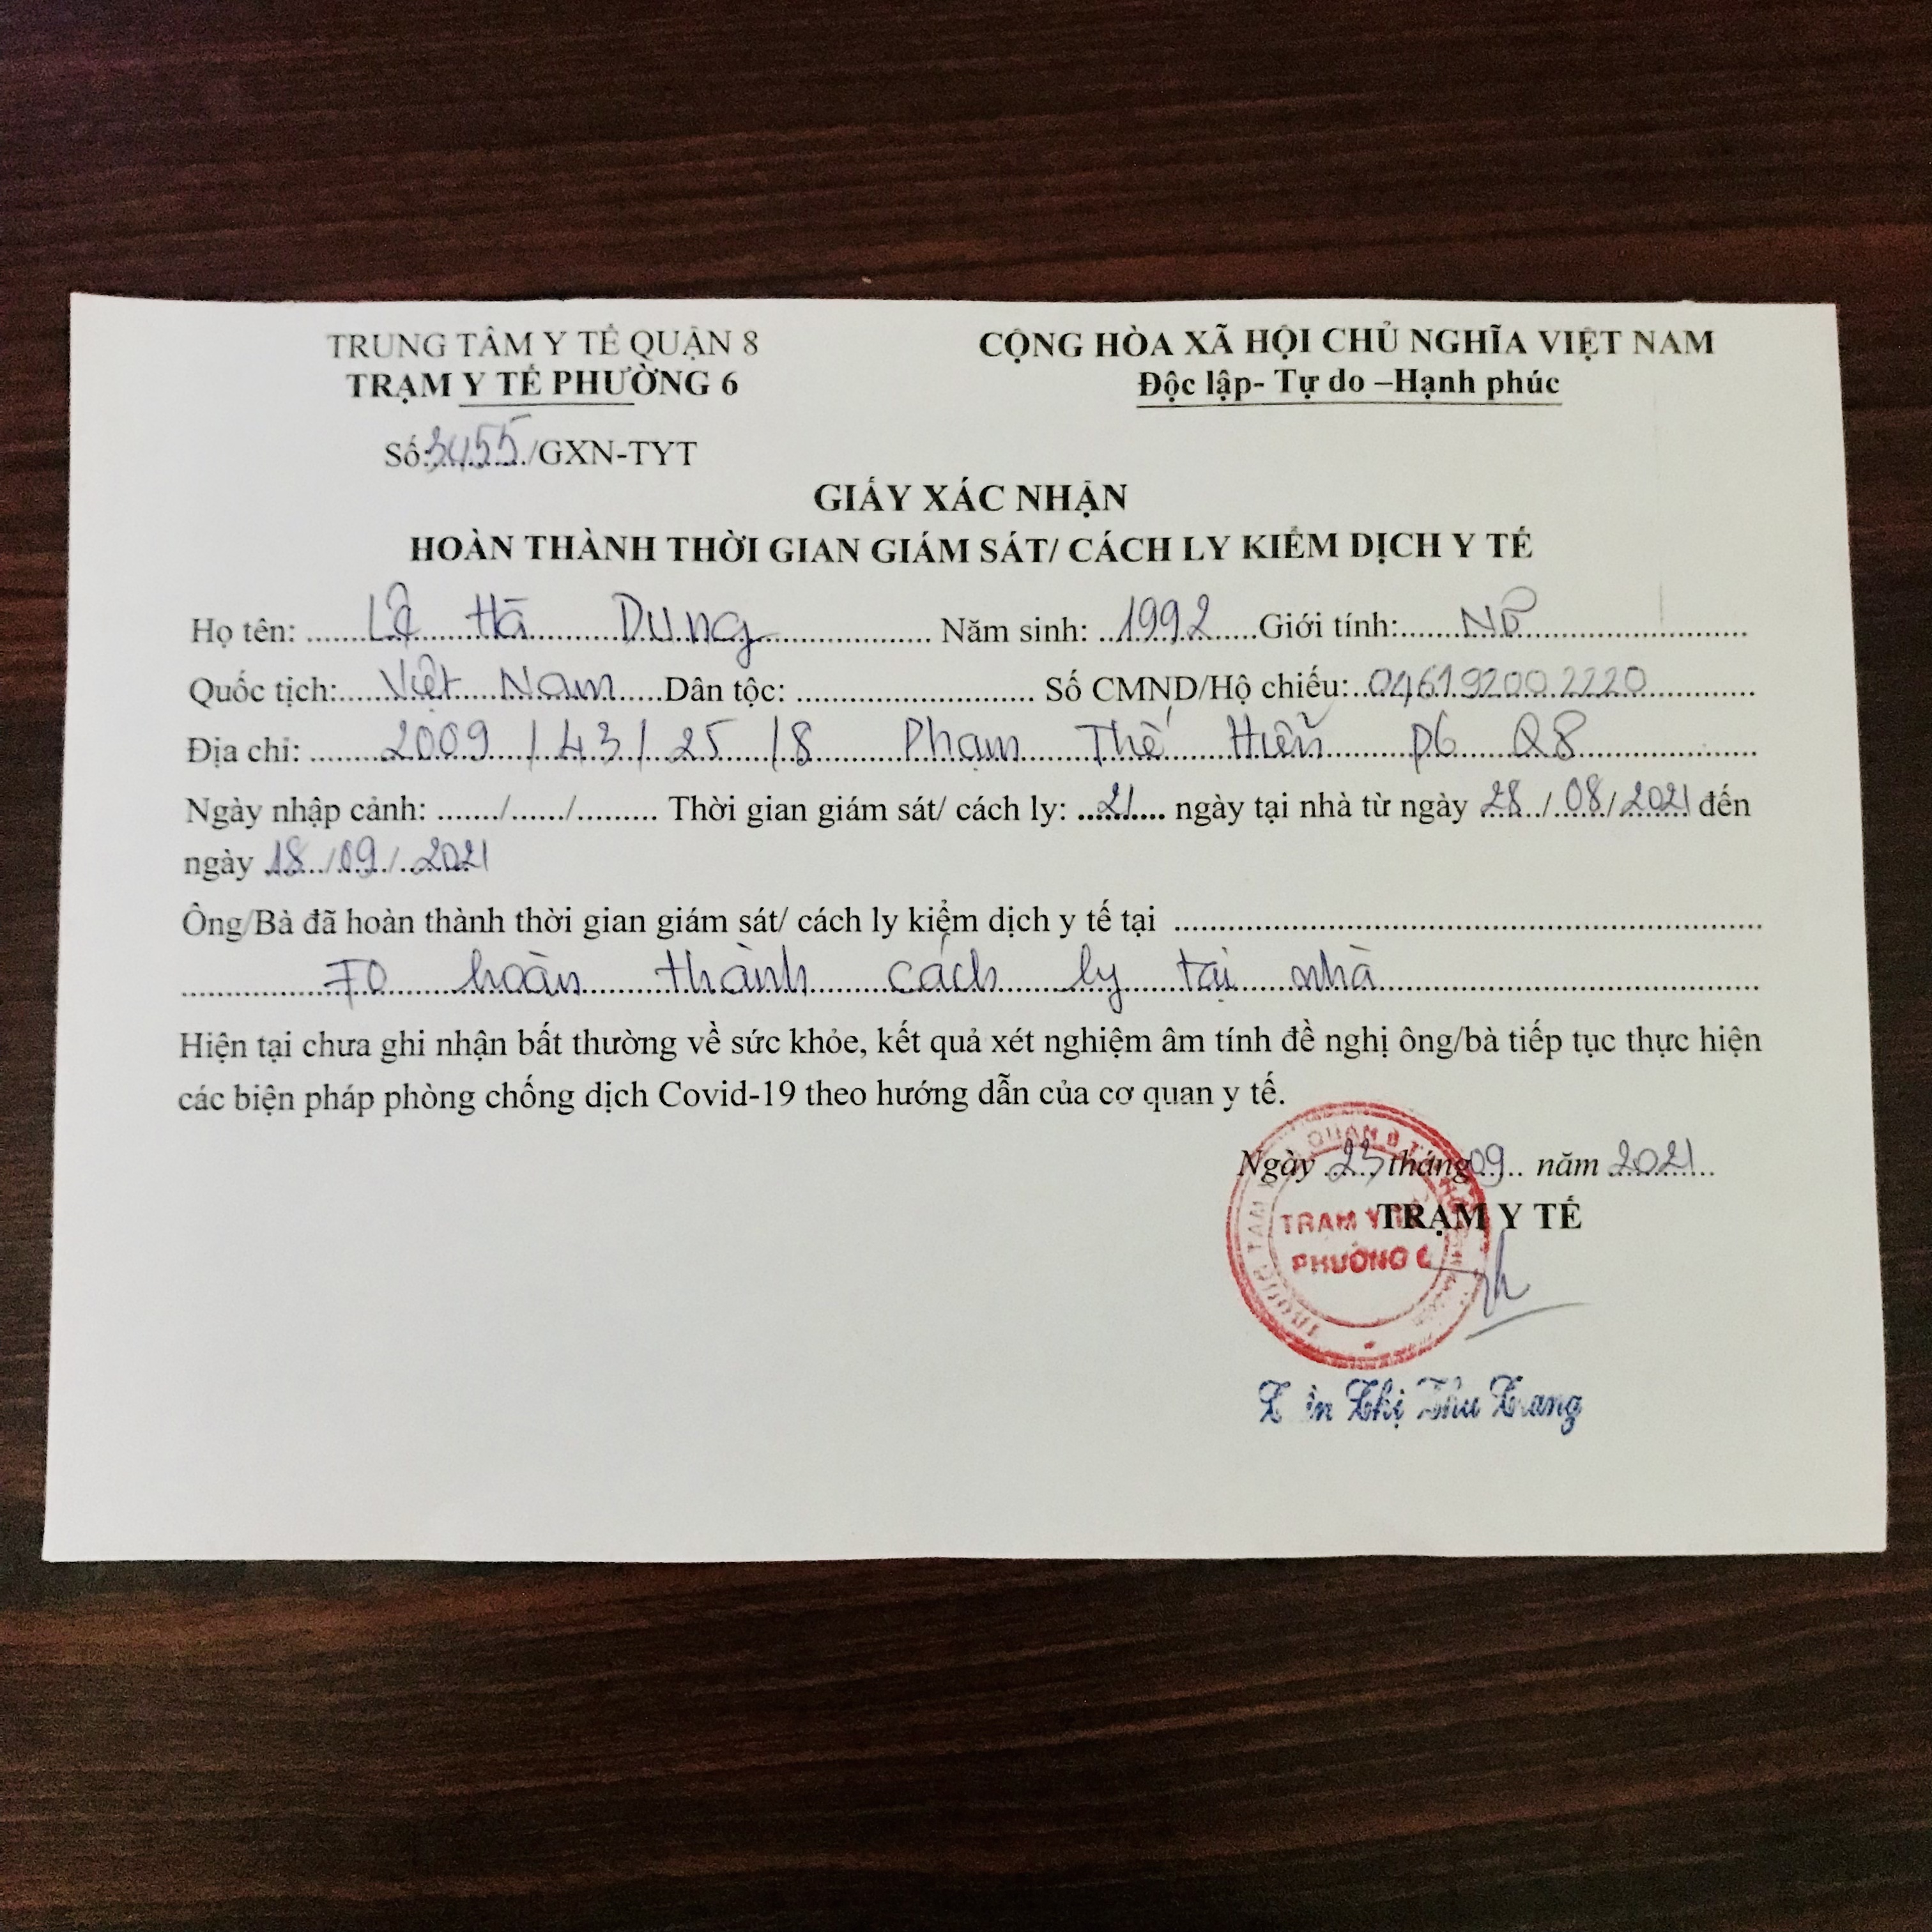 TRUNG TÂM Y TẾ QUẬN 8
TRẠM Y TẾ PHƯỜNG 6
CỘNG HÒA XÃ HỘI CHỦ NGHĨA VIỆT NAM
Độc lập- Tự do –Hạnh phúc
Số:3455/GXN-TYT
GIẤY XÁC NHẬN
HOÀN THÀNH THỜI GIAN GIÁM SÁT/ CÁCH LY KIỂM DỊCH Y TẾ
Họ tên: Lê Hà Dung Năm sinh: 1992 Giới tính: Nữ
Quốc tịch: Việt Nam Dân tộc: Số CMND/Hộ chiếu: 046192002220
Địa chỉ: 2009/43/25/8 Phạm Thế Hiển P6 Q8
Ngày nhập cảnh: ......./....../......... Thời gian giám sát/ cách ly: 21 ngày tại nhà từ ngày 28/08/2021 đến
ngày 18/09/2021
Ông/Bà đã hoàn thành thời gian giám sát/ cách ly kiểm dịch y tế tại
F0 hoàn thành cách ly tại nhà
Hiện tại chưa ghi nhận bất thường về sức khỏe, kết quả xét nghiệm âm tính đề nghị ông/bà tiếp tục thực hiện
các biện pháp phòng chống dịch Covid-19 theo hướng dẫn của cơ quan y tế.
Ngày 23 tháng 09 năm 2021
TRẠM Y TẾ
TRẠM Y TẾ
PHƯỜNG 6
TRUNG TÂM Y TẾ QUẬN 8
Thị Thu Trang